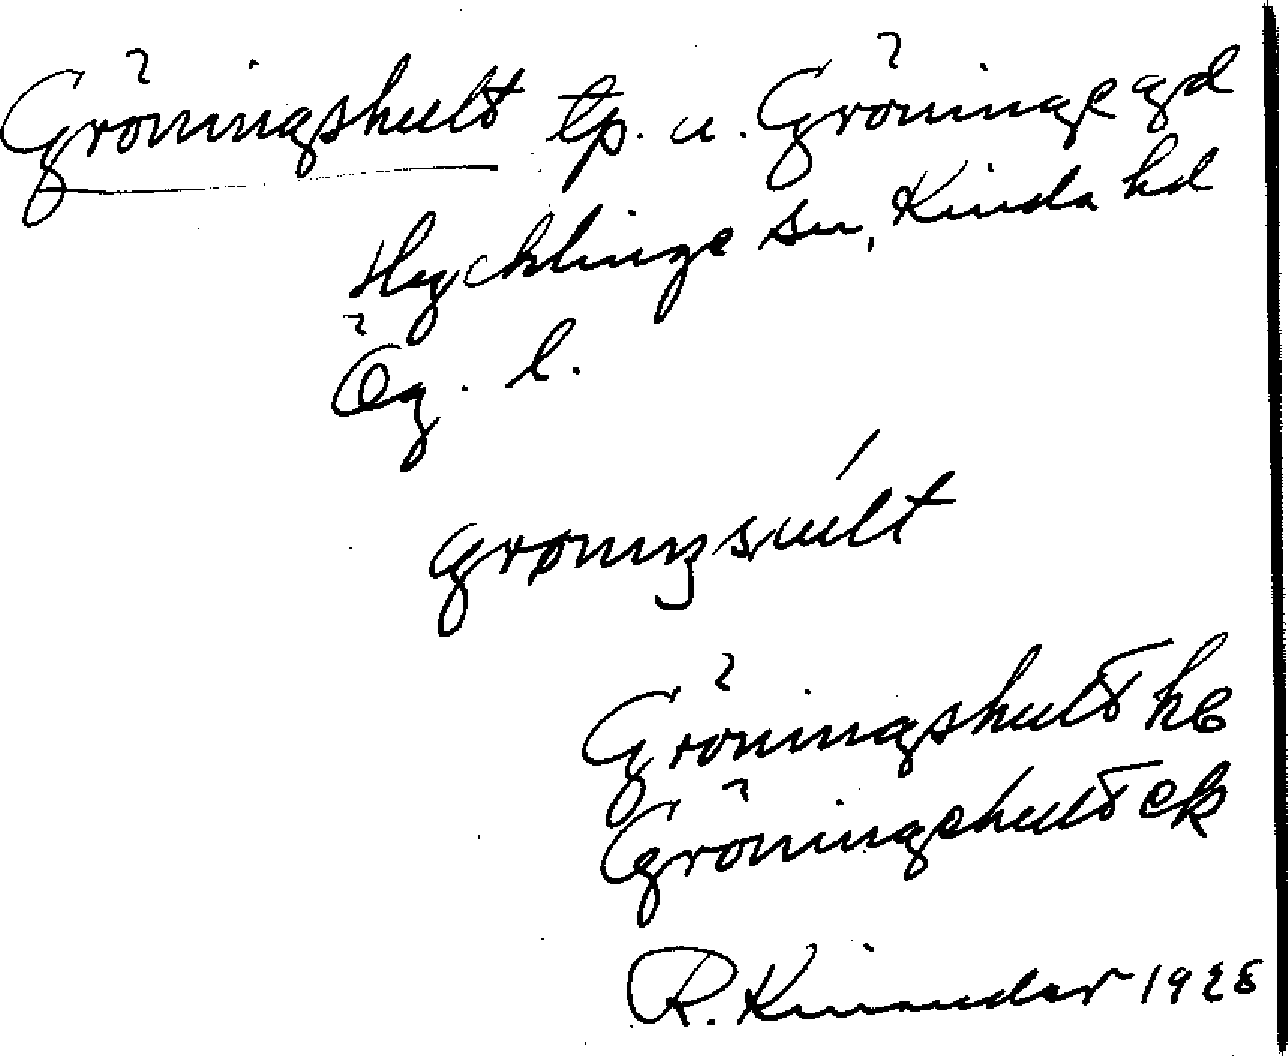 Gröningshult tp. u. Gröninge gd
Hycklinge sn, Kinda hd
Ög. l.
Gröningshult hb
Gröningshult ek
R. Kinander 1928